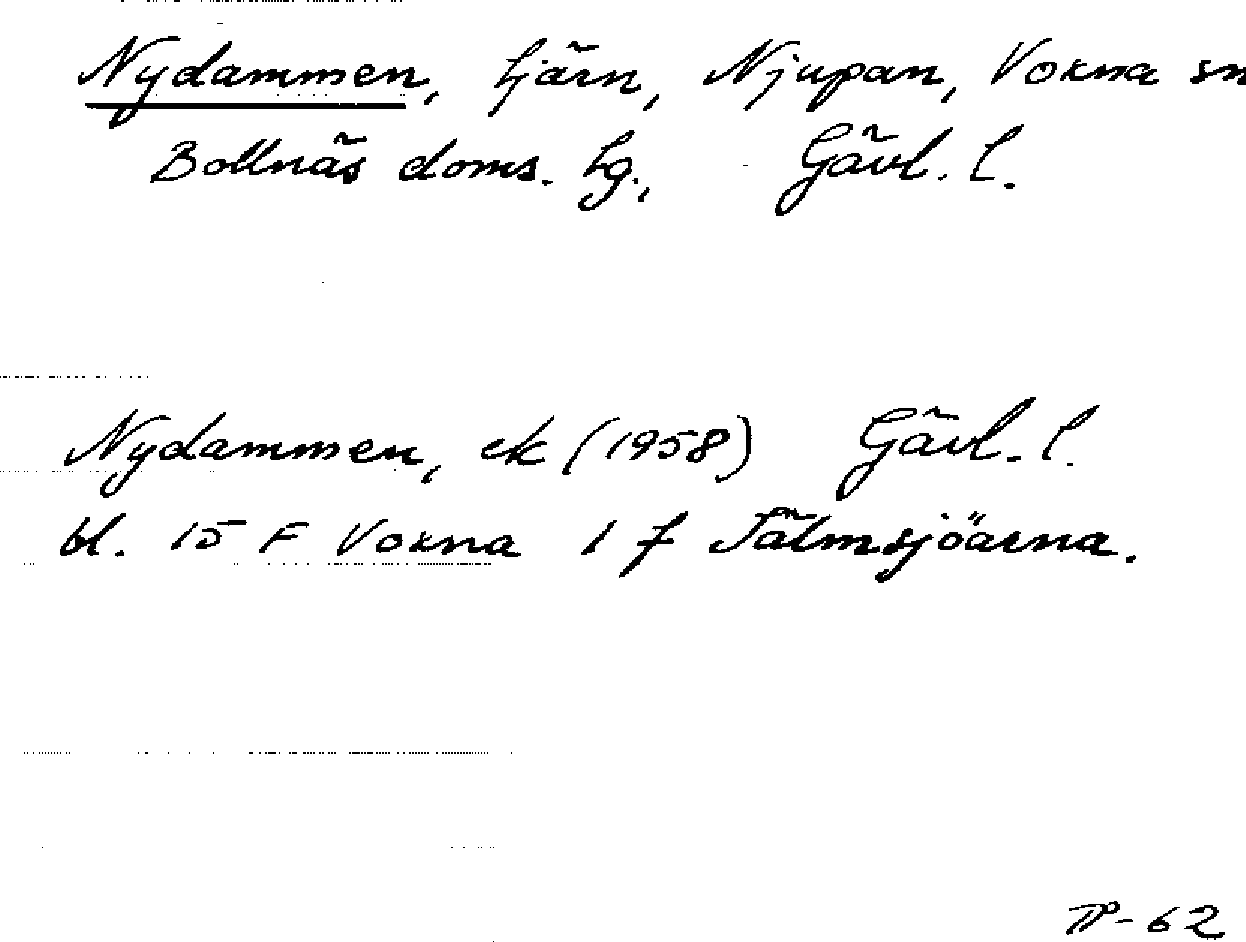 Nydammen, tjärn, Njupan, Voxna sn
Bollnäs doms. lg., Gävl. l.
Nydammen, ek (1958) Gävl. l.
bl. 15 F Voxna 1 f Tälmsjöarna.
TP-62